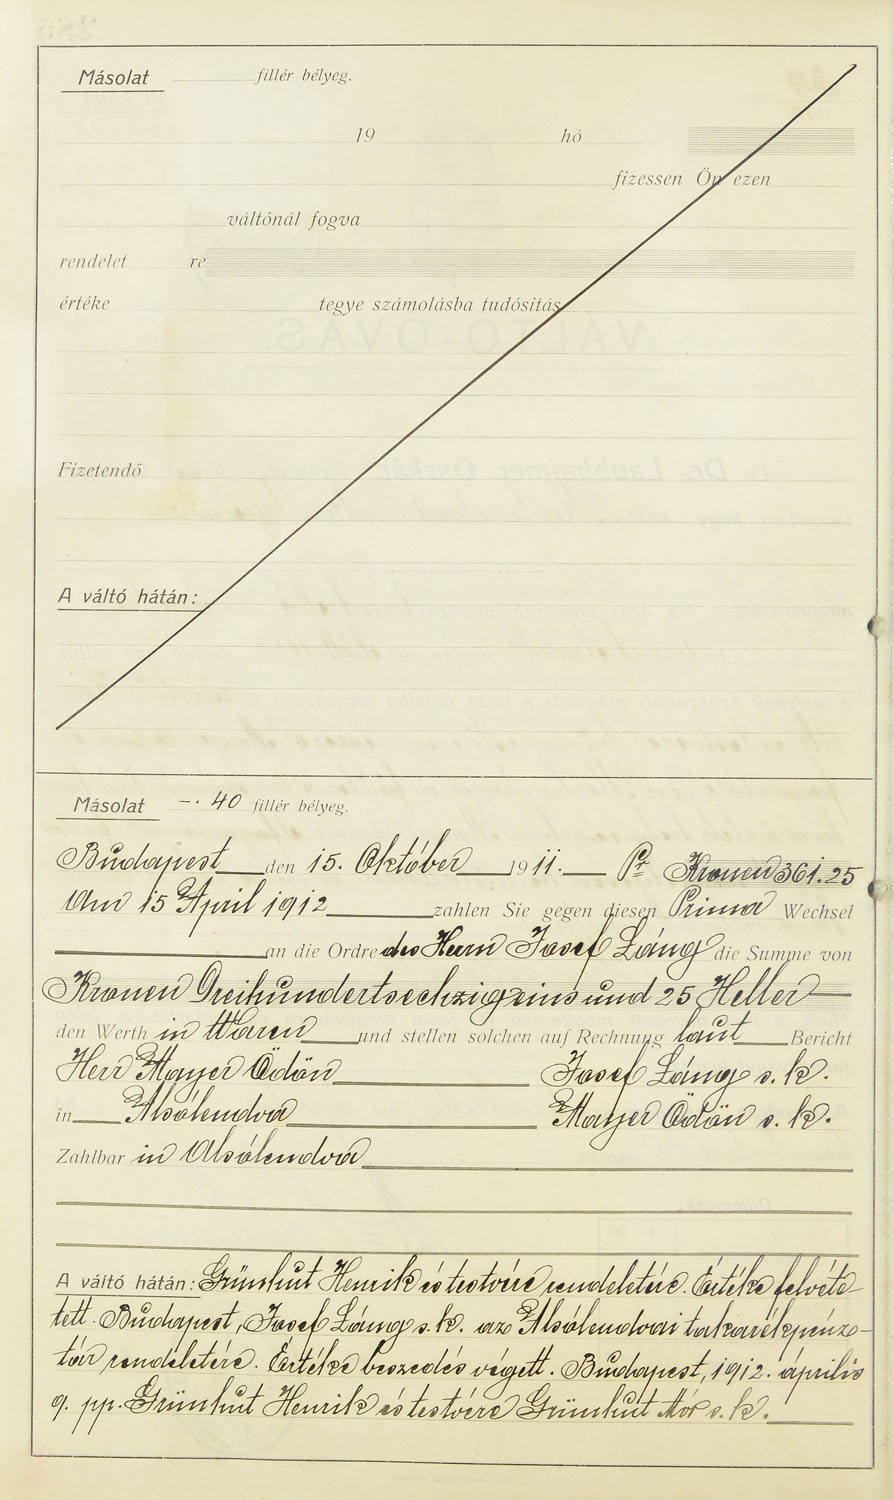 Másolat fillér bélyeg.
19 hó
fizessen Ön ezen
váltónál fogva
rendelet re
értéke tegye számolásba tudósitás
Fizetendő
A váltó hátán:
Másolat —· 40 fillér bélyeg.
Budapest den 15. Október 1911. Pr Kronen 361.25
Am 15 April 1912 zahlen Sie gegen diesen Prima Wechsel
an die Ordre des Herrn Josef Láng die Summe von
Kronen Dreihundertsechzigeins und 25 Heller
den Werth in Waren und stellen solchen auf Rechnung laut Bericht
Herr Mayer Ödön Josef Láng s. k.
in Alsólendva Mayer Ödön s. k.
Zahlbar in Alsólendva
A váltó hátán: Grünhut Henrik és testvére rendeletére. Értéke felvéte-
tett. Budapest, Josef Láng s. k. az Alsólendvai takarékpénz-
tár rendeletére. Értéke beszedés végett. Budapest, 1912. április
9. pp. Grünhut Henrik és testvére Grünhut Mór s. k.